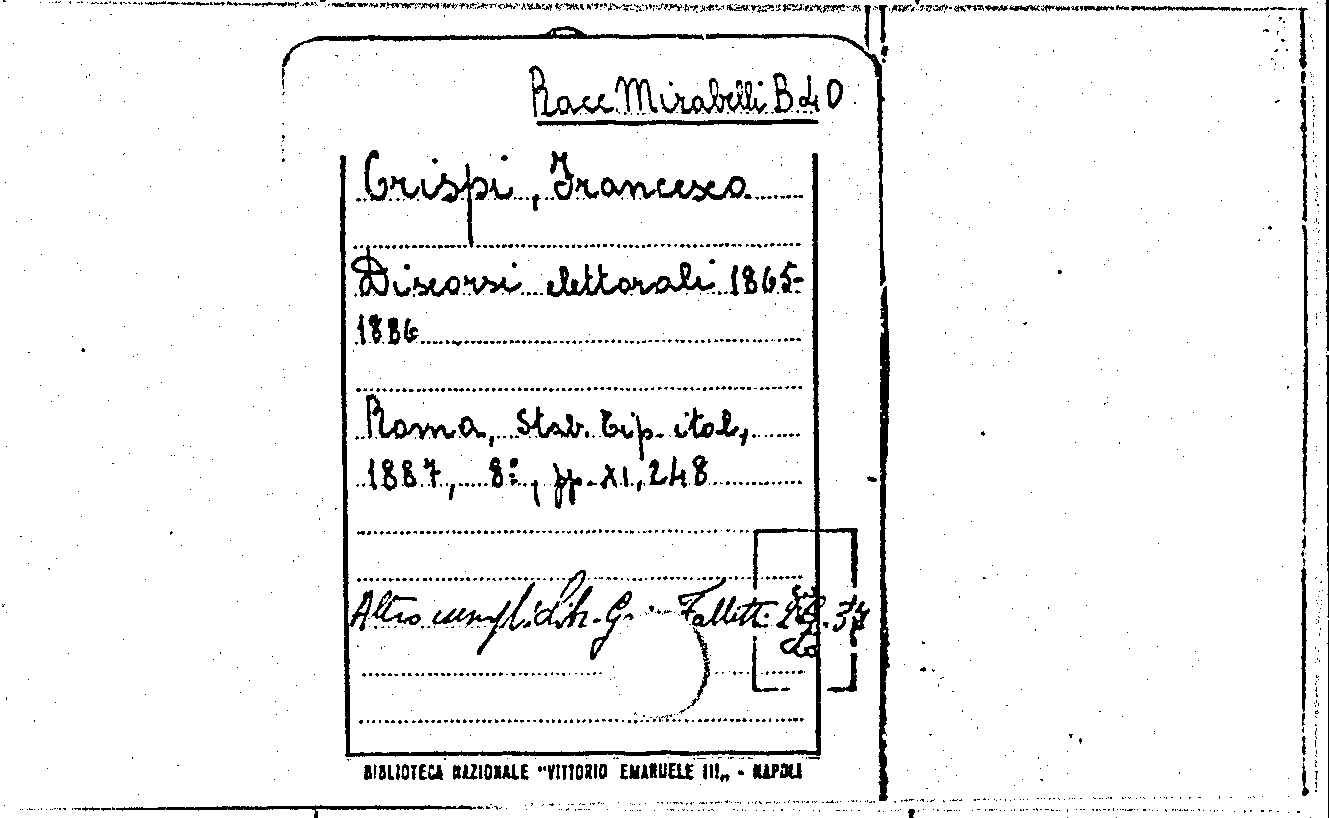 Racc Mirabelli B 40
Crispi, Francesco
Discorsi elettorali 1865-
1886
Roma, Stab. Tip. ital,
1887, 8º, pp. XI, 248
Altro
BIBLIOTECA NAZIONALE "VITTORIO EMANUELE III„ - NAPOLI